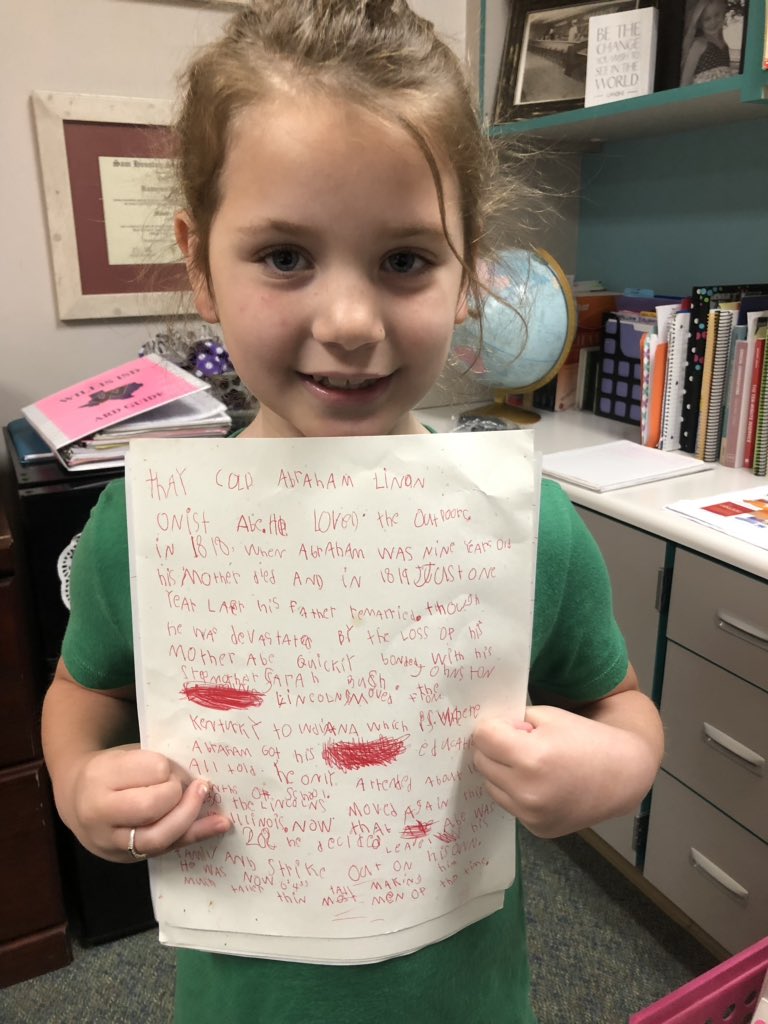 BE THE
CHANGE
YOU WISH TO
SEE IN THE
WORLD
Sam Houston
WILLIS ISD
ARD GUIDE
tHAY COLD ABRAHAM LINON
ONIST Abe. He LOVED the OutDOORS.
in 1818, WHEN ABRAHAM WAS NINE YEARS OLD
his MOther DIED AND in 1819 JUSt ONE
YEAR LAteR his FAther remARRIED. though
he WAS DEVAStAteD BY the LOSS OF his
MOTHER Abe QUICKLY bonded With his
StePmother SARAH BUSH JOhnSTON
LINCOLNS MOVED FROM
KENtUCKY tO INDIANA Which IS Where
ABRAHAM GOt his educAtion
All tolD. he ONLY AttenDeD ABOUt
OF School
the LINCOLNS MOVED AGAIN this
ILLINOIS. NOW that Abe WAS
22 he deciDeD LEAVE his
FAMILY AND StRIKE OUt ON his OWN.
He WAS NOW 6'4" tALL MAKING him
MUCH tALLER thIN MOSt MEN OF the time.